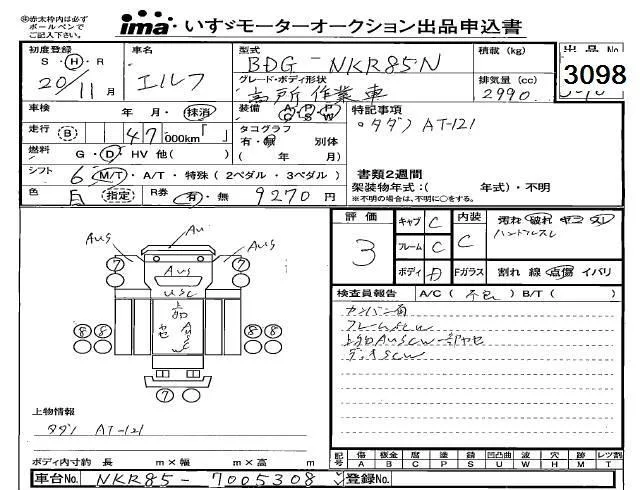 ※赤太枠内は必ず
ボールペンで
ご記入下さい。
ima いすゞモーターオークション出品申込書
初度登録
S・H・R
20/11月
車名
エルフ
型式
BDG-NKR85N
グレード・ボディ形状
高所作業車
積載(kg)
排気量(cc)
2990
出品No
3098
車検
年 月・抹消
装備
A/C P/S P/W
走行 B
47,000km「 」
タコグラフ
有・無 別体
( 年 月)
燃料
G・D・HV 他( )
シフト
6 M/T・A/T・特殊(2ペダル・3ペダル)
色
白 指定
R券
有・無 9270円
特記事項
・タダノ AT-121
書類2週間
架装物年式:( 年式)・不明
※不明の場合は、不明に○をする。
評価
3
キャブ C
フレーム C
ボディ D
内装
C
汚れ 破れ ヤニ スレ
ハンドルスレ
Fガラス
割れ 線 点傷 イバリ
AUS
AU
AUS
AUS
USC
上部
AUSCW
ヤセ
7
7
8 8
8 8
7
検査員報告
A/C( 不包 )B/T( )
カンバン角
フレームSCW
上部AUSCW一部ヤセ
デッキSCW
上物情報
タダノ AT-121
ボディ内寸約 長 m×幅 m×高 m
記号
傷 板金 腐 塗 錆 凹凸曲 波 穴 跡 レンズ割
A B C P S U W H M T
車台No.
NKR85-7005308
登録No.